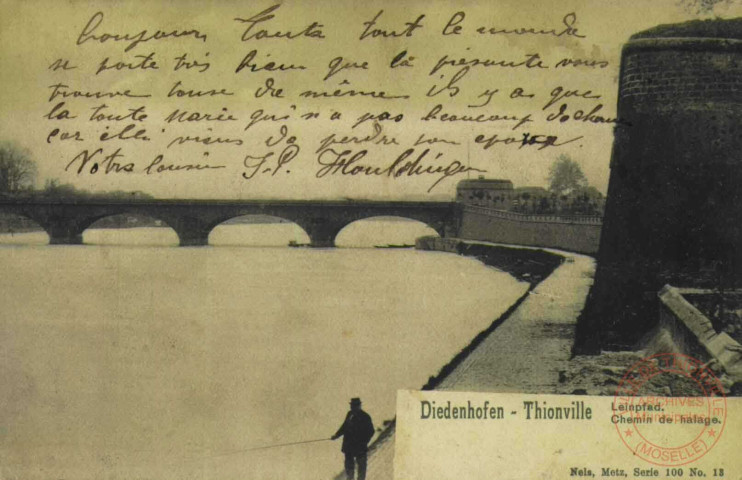 bonjour tout le monde
se porte très bien que la présente vous
trouve tous de même il y a que
la tante Marie qui n'a pas beaucoup de
car elle viens de perdre son
Votre cousin J. P.
Diedenhofen - Thionville
Leinpfad.
Chemin de halage.
ARCHIVES
(MOSELLE)
Nels, Metz, Serie 100 No. 13